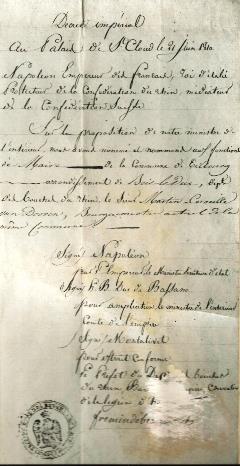 Decret imperial
Au Palais de St Cloud le 21 Juin 1810
Napoleon Empereur des francais, roi d'italie
Protecteur de la Confederation du rhin, mediateur
de la Confederation Suisse
Sur la proposition de notre ministre de
l'interieur, nous avons nommé et nommons aux fonctions
de Maire de la Commune de
arrondissement de Bois le Duc, dept
des bouches du rhin, le Sieur Martin
van bourguemestre actuel de la
même Commune
Signé Napoleon
par l'Empereur le Ministre Secretaire d'etat
Signé H B Duc de Bassano
pour ampliation le ministre de l'interieur
Comte de l'empire
Signé Montalivet
pour extrait conforme
Le Prefet du Dept des bouches
du rhin
de la legion d'
fremin de b